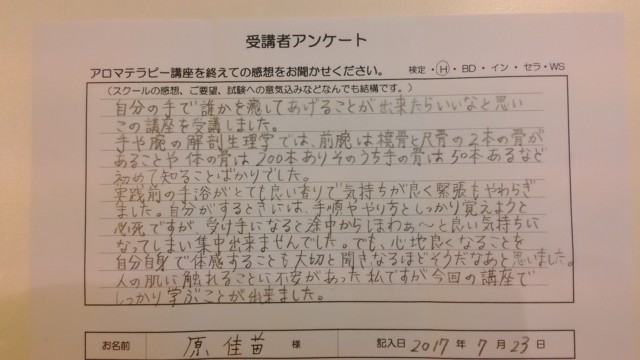 受講者アンケート
アロマテラピー講座を終えての感想をお聞かせください。 検定・Ⓗ・BD・イン・セラ・WS
(スクールの感想、ご要望、試験への意気込みなどなんでも結構です。)
自分の手で誰かを癒してあげることが出来たらいいなと思い
この講座を受講しました。
手や腕の解剖生理学では、前腕は橈骨と尺骨の2本の骨が
あることや体の骨は200本ありそのうち手の骨は50本あるなど
初めて知ることばかりでした。
実践前の手浴がとても良い香りで気持ちが良く緊張もやわらぎ
ました。自分がするときには、手順ややり方としっかり覚えようと
必死ですが、受け手になると途中からしまわぁ〜と良い気持ちに
なってしまい集中出来ませんでした。でも、心地良くなることを
自分自身で体感することも大切と聞きなるほどそうだなあと思いました。
人の肌に触れることに不安があった私ですが今回の講座で
しっかり学ぶことが出来ました。
お名前 原 佳苗 様 記入日 2017 年 7 月 23 日